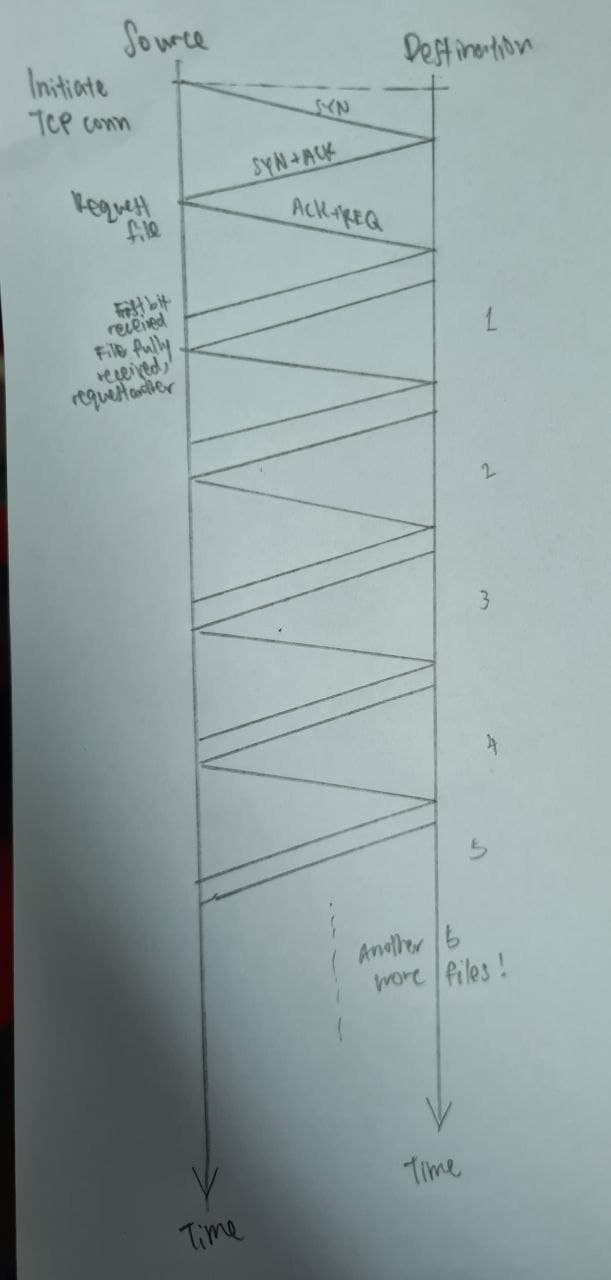 Source
Destination
Initiate
TCP conn
SYN
SYN+ACK
Request
file
ACK+REQ
First bit
received
File fully
received,
request another
1
2
3
4
5
Another 5
more files!
Time
Time